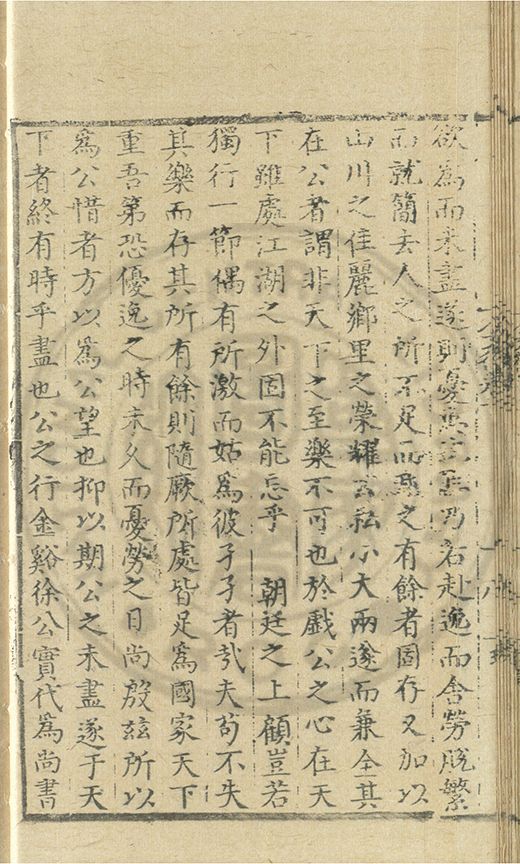 欲為而未盡遂則憂
乃若赴逸而舍勞脫繁
而就簡去人之所不足而之有餘者固存又加以
山川之佳麗鄉里之榮耀公私小大兩遂而兼全其
在公者謂非天下之至樂不可也於戲公之心在天
下雖處江湖之外固不能忘乎 朝廷之上顧豈若
獨行一節偶有所激而姑為彼孑孑者哉夫苟不失
其樂而存其所有餘則隨厥所處皆足為國家天下
重吾第恐優逸之時未久而憂勞之日尚殷茲所以
為公惜者方以為公望也抑以期公之未盡遂于天
下者終有時乎盡也公之行金谿徐公實代為尚書